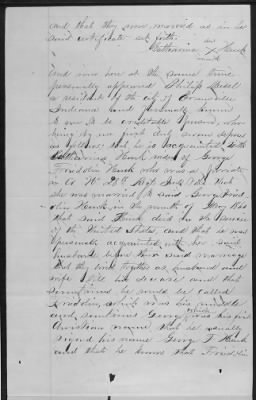 and that they were married as in her
said certificate set forth.
her
Catharina X Hauck
mark
And now here at the same time
personally appeared Philip
a resident of the city of Evansville
Indiana and personally known
to me to be creditable person, who
being by me first duly sworn deposes
as follows: that he is acquainted with
Catharina Hauck widow of George
Fridolin Hauck who was a private
in Co Regt Ind Vols that
she was married to said George Frid
olin Hauck in the month of May
that said Hauck died in the service
of the United States, and that he was
personally acquainted with her said
husband before their said marriage
that they lived together as husband and
wife till his decease and that
sometimes he would be called
Fridolin, which was his middle
and sometimes George which was his first
Christian name that he usually
signed his name George F. Hauck
and that he knows that Fridolin